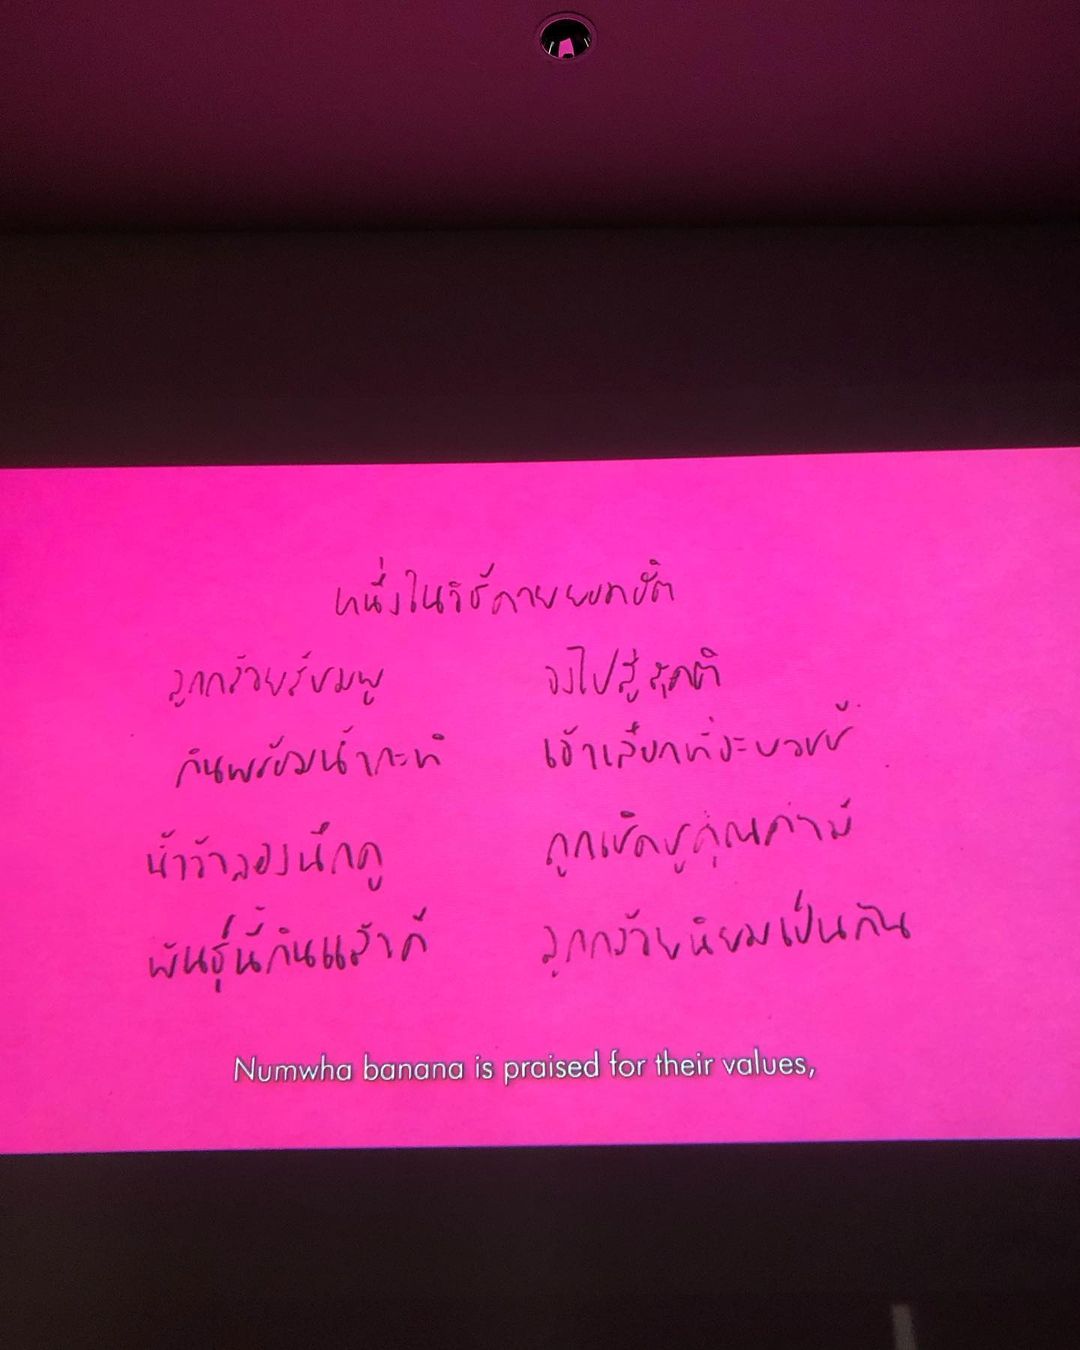 หนึ่งในวิธีตายยอดฮิต
ลูกกล้วยสีชมพู จงไปสู่สุคติ
กินพร้อมน้ำกะทิ เจ้าเลือกที่จะบวชชี
น้ำว้าลองนึกดู ถูกเชิดชูคุณค่ามี
พันธุ์นี้กินแล้วดี ลูกกล้วยนิยมเป็นกัน
Numwha banana is praised for their values,